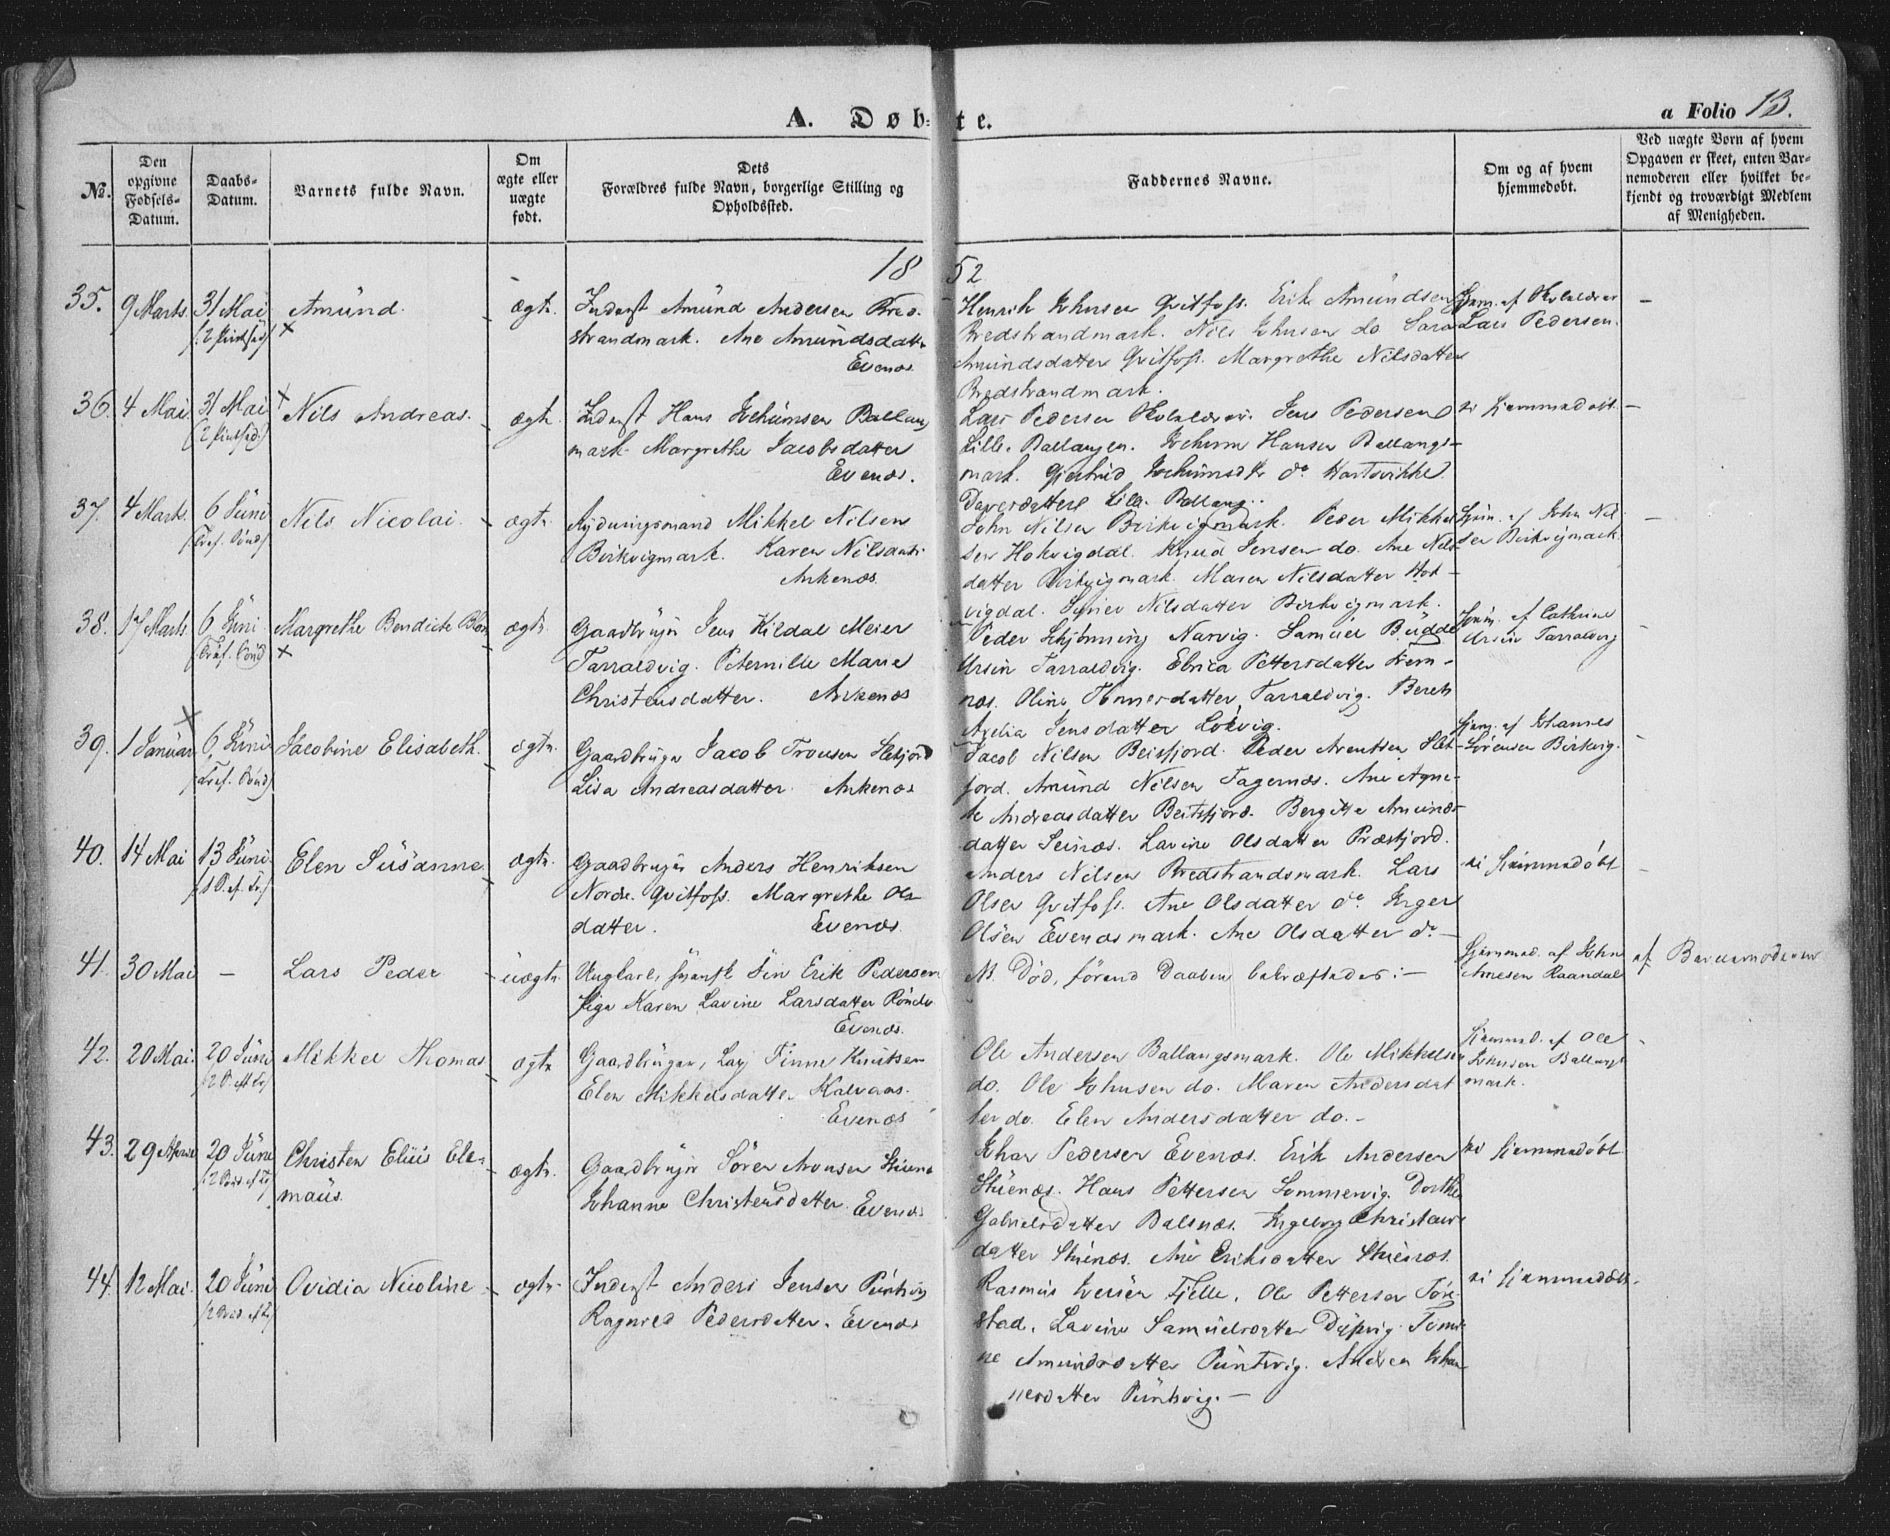 A. Døb- te.
a Folio 13.
№.
Den opgivne Fødsels-Datum.
Daabs-Datum.
Barnets fulde Navn.
Om ægte eller uægte født.
Dets Forældres fulde Navn, borgerlige Stilling og Opholdssted.
Faddernes Navne.
Om og af hvem hjemmedøbt.
Ved uægte Børn af hvem Opgaven er skeet, enten Barnemoderen eller hvilket bekjendt og troværdigt Medlem af Menigheden.
1852
35. 9 Marts. 31 Mai Amünd. ægte. Inderst Amünd Andersen Bred-
strandmark. Ane Amündsdatter
Evenæs
Henrik Johnsen Qvitfoss. Erik Amündsen
Bredstrandmark. Nils Johnsen do Sara
Amündsdatter Qvitfoss. Margrethe Nilsdatter
Bredstrandmark.
Hjem. af Skolelærer
Lars Pedersen. –
36. 4 Mai 31 Mai Nils Andreas. ægte. Inderst Hans Jochümsen Ballang
mark. Margrethe Jacobsdatter
Evenæs.
Lars Pedersen Skolelærer. Jens Pedersen
Lille Ballangen. Jochum Hansen Ballangs-
mark. Gjertrud Jochümsdtr do
Lille Ballang.
ei hjemmedøbt. –
37. 4 Marts. 6 Jüni Nils Nicolai. ægte. Rydningsmand Mikkel Nilsen
Birkvigmark. Karen Nilsdatr
Ankenæs.
John Nilsen Birkvigmark. Peder Mikkel
sen Hokvigdal. Knud Jensen do. Ane Nils-
datter Birkvigmark. Maren Nilsdatter Hok-
vigdal. Nilsdatter Birkvigmark.
Hjem. af John Nil-
sen Birkvigmark. –
38. 17 Marts. 6 Jüni Margrethe Bendicte ægte. Gaardbrüger Jens Kildal Meier
Tarraldvig. Peternille Marie
Christensdatter. Ankenæs
Peder Schjønning Narvig. Samüel Büdde
Ursin Tarraldvig. Elrica Pettersdatter Fem-
næs. Oline Tønnesdatter Tarraldvig. Bereth
Axelia Jensdatter Lokvig.
Hjem. af Cathrine
Ursin Tarraldvig –
39. 1 Janüar 6 Jüni Jacobine Elisabeth. ægte. Gaardbrüger Jacob Tronsen
Lisa Andreasdatter. Ankenæs
Jacob Nilsen Beisfjord. Peder Arentsen
fjord. Amünd Nilsen Fagernæs. Ane Agne-
te Andreasdatter Beitsfjord. Bergitte Amünds-
datter Leinæs. Lavine Olsdatter Præstjord.
hjem. af Johannes
Sørensen Birkvig. –
40. 14 Mai 13 Jüni Elen Süsanne. ægte. Gaardbrüger Anders Henriksen
Nordre Qvitfoss. Margrethe Ols
datter. Evenæs
Anders Nilsen Bredstrandsmark. Lars
Olsen Qvitfoss. Ane Olsdatter do. Inger
Olsen Evenæsmark. Ane Olsdatter do –
ei hjemmedøbt –
41. 30 Mai – Lars Peder üægte. Ungkarl, svensk Fin Erik Pedersen
Pige Karen Lavine Larsdatter
Evenæs.
Død, førend Daaben bekræftedes: –
Hjemmed. af John
Arnesen Raandal
af Barnemoderen
42. 20 Mai. 20 Jüni Mikkel Thomas ægte Gaardbrüger, Lap Finne Knütsen
Elen Mikkelsdatter Kalvaas.
Evenæs
Ole Andersen Ballangsmark. Ole Mikkelsen
do. Ole Johnsen do. Maren Andersdat
ter do. Elen Andersdatter do. –
hjemmed. af Ole
Johnsen Ballangs
mark. –
43. 29 20 Jüni Christen Eliüs Ele-
maüs. ægte. Gaardbrüger Søren Aronsen
Johanna Christensdatter. Evenæs
Johan Pedersen Evenæs. Erik Andersen
Stüenæs. Hans Pettersen Sommervig. Dorthe
Gabrielsdatter Balsnæs. Ingeborg Christens
datter Stüenæs. Ane Eriksdatter Stüenæs.
ei hjemmedøbt
44. 12 Mai. 20 Jüni Ovidia Nicoline – ægte. Inderst Anders Jensen Püntsvig
Ragnild Pedersdatter. Evenæs
Rasmüs Iversen Fjelle. Ole Pettersen Tøre-
stad. Lavine Samüelsdatter Dypvig.
Amündsdatter Püntsvig. Andrea Johan
nesdatter Püntsvig. –
ei hjemmedøbt.